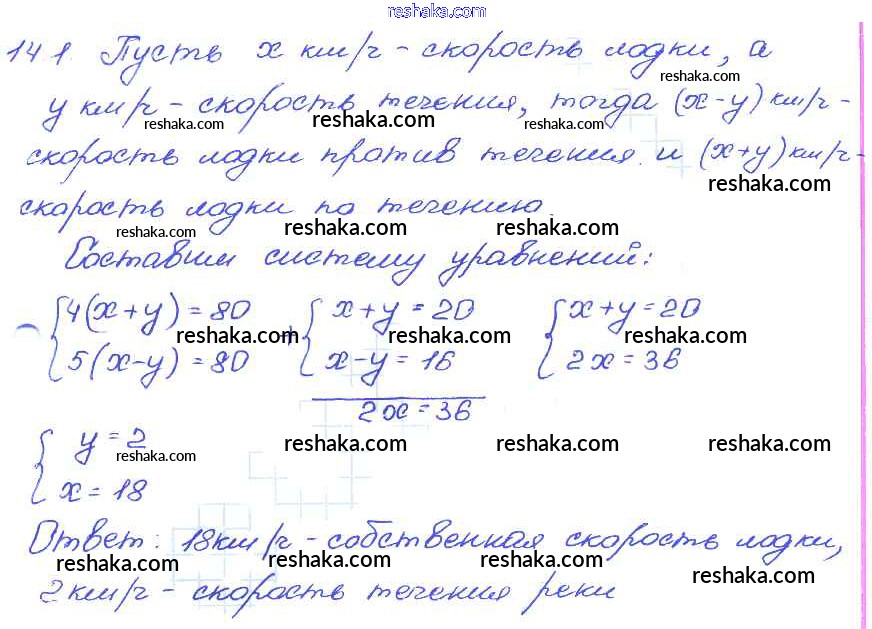 reshaka.com
14.1. Пусть x км/ч - скорость лодки, а
reshaka.com
y км/ч - скорость течения, тогда (x-y) км/ч -
reshaka.com reshaka.com reshaka.com
скорость лодки против течения и (x+y) км/ч -
reshaka.com
скорость лодки по течению.
reshaka.com reshaka.com reshaka.com
Составим систему уравнений:
{4(x+y) = 80 + {x+y = 20 {x+y = 20
reshaka.com reshaka.com reshaka.com
5(x-y) = 80 x-y = 16 2x = 36
2x = 36
{y = 2
reshaka.com reshaka.com reshaka.com reshaka.com
x = 18
Ответ: 18 км/ч - собственная скорость лодки,
reshaka.com reshaka.com reshaka.com
2 км/ч - скорость течения реки